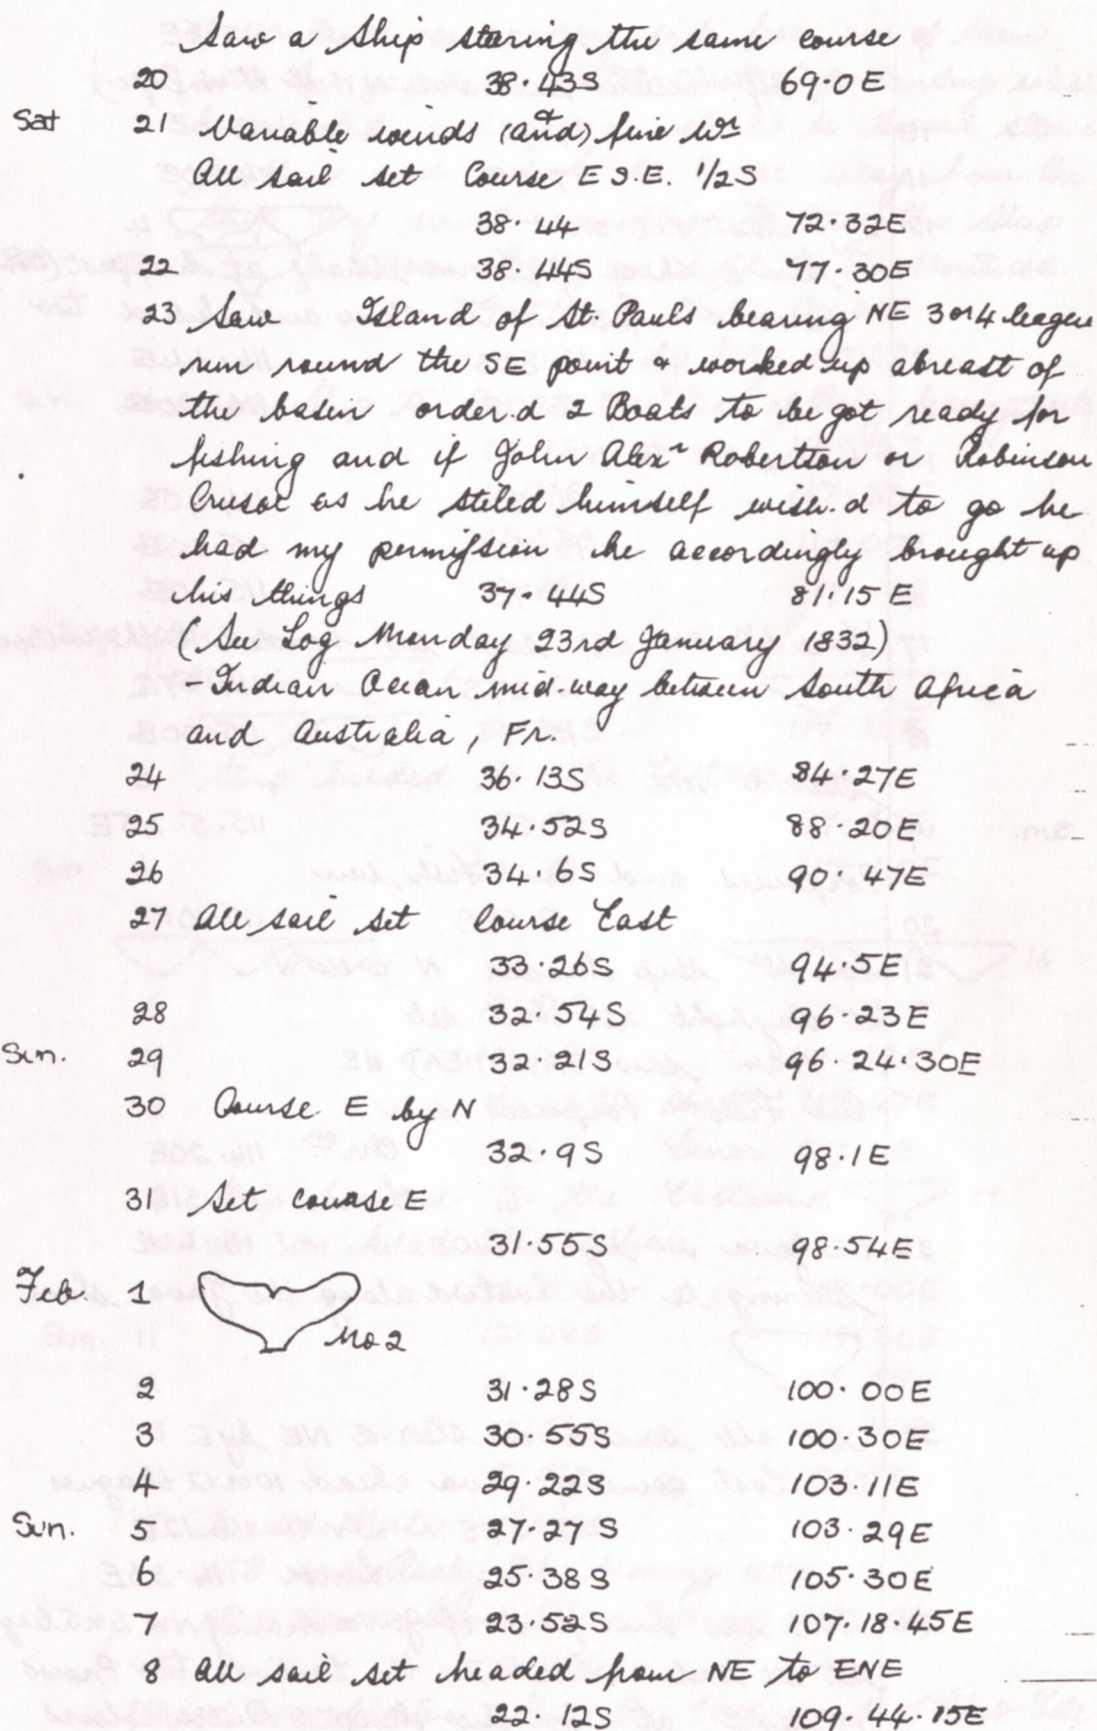 Saw a Ship staring the same course
20 38.43S 69.0E
Sat 21 Variable winds (and) & fine Wr
All sail set Course E S.E. 1/2S
38.44 72.32E
22 38.44S 77.30E
23 Saw Island of St. Pauls bearing NE 3or4 league
run round the SE point & worked up abreast of
the basen order.d 2 Boats to be got ready for
fishing and if John Alexr Robertson or Robinson
Crusoe as he stiled himself wish.d to go he
had my permission he accordingly brought up
his things 37.44S 81.15E
(See Log Monday 23rd January 1832)
- Indian Ocean mid-way between South Africa
and Australia, Fr.
24 36.13S 84.27E
25 34.52S 88.20E
26 34.6S 90.47E
27 All sail set Course East
33.26S 94.5E
28 32.54S 96.23E
Sun. 29 32.21S 96.24.30E
30 Course E by N
32.9S 98.1E
31 Set course E
31.55S 98.54E
Feb. 1 No 2
2 31.28S 100.00E
3 30.55S 100.30E
4 29.22S 103.11E
Sun. 5 27.27S 103.29E
6 25.38S 105.30E
7 23.52S 107.18.45E
8 All sail set headed from NE to ENE
22.12S 109.44.15E